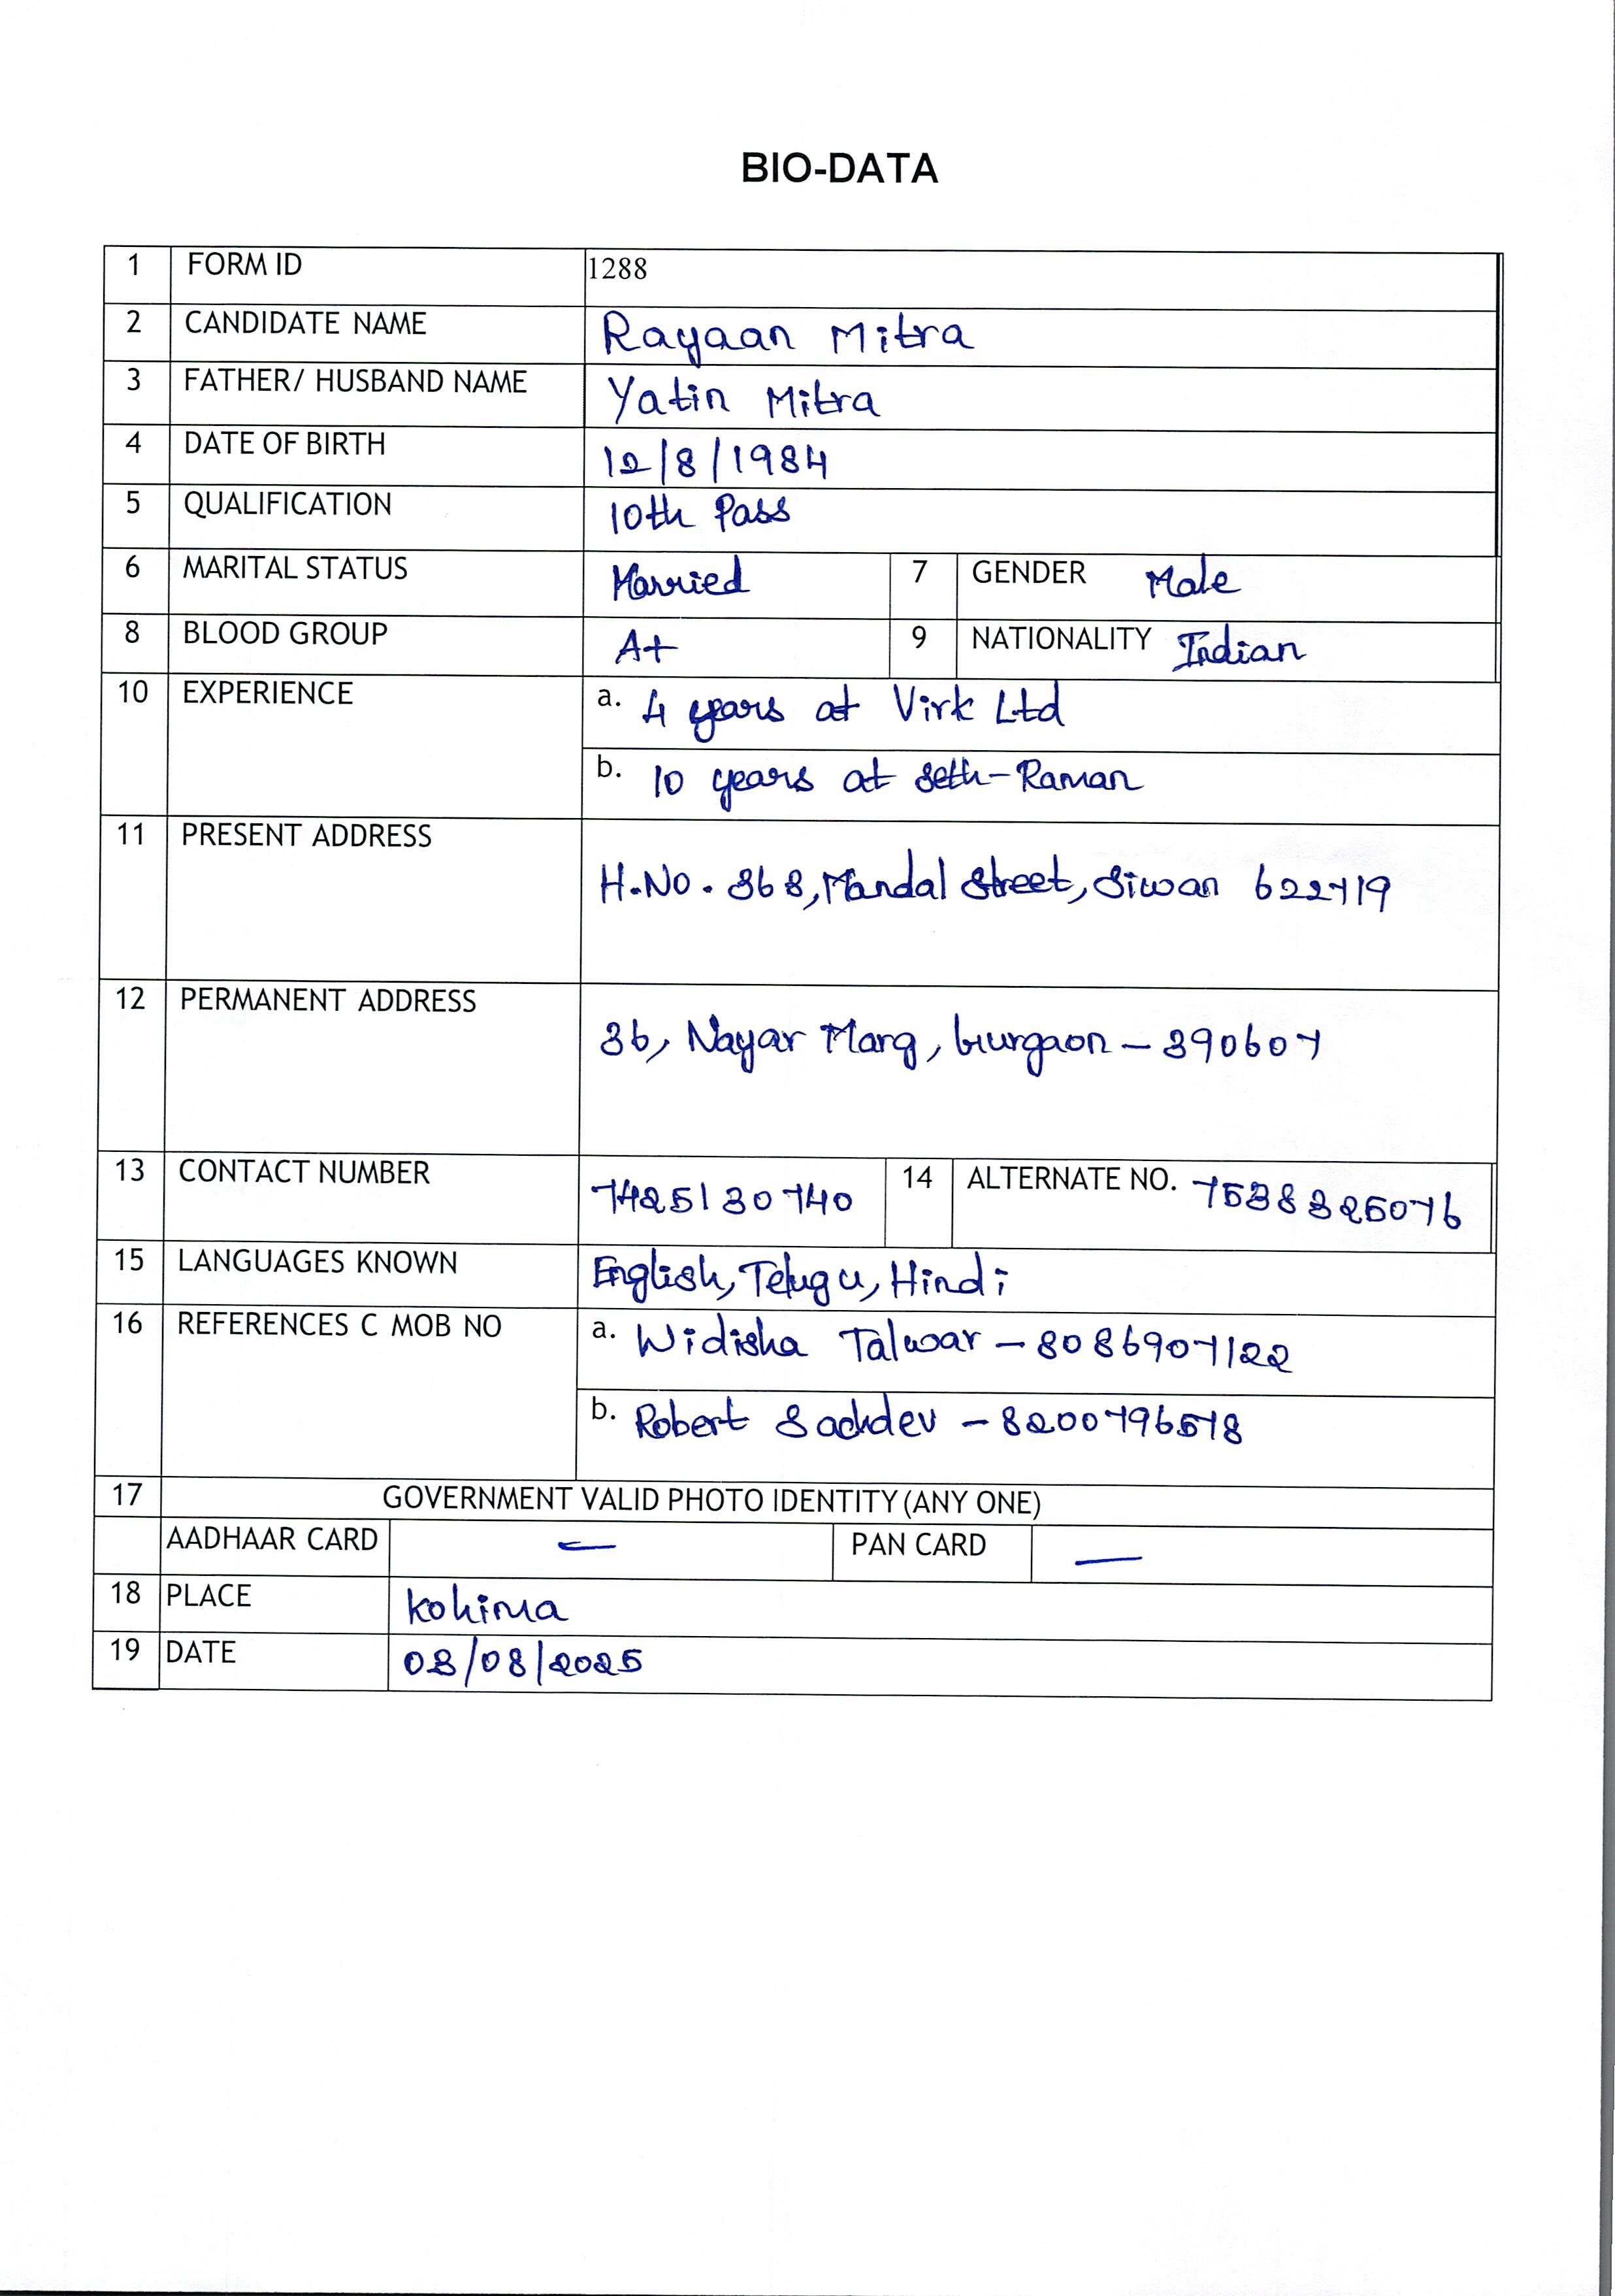 BIO-DATA
1 FORM ID 1288
2 CANDIDATE NAME Rayaan Mitra
3 FATHER/ HUSBAND NAME Yatin Mitra
4 DATE OF BIRTH 12/8/1984
5 QUALIFICATION 10th Pass
6 MARITAL STATUS Married 7 GENDER Male
8 BLOOD GROUP A+ 9 NATIONALITY Indian
10 EXPERIENCE a. 4 years at Virk Ltd
b. 10 years at Seth-Raman
11 PRESENT ADDRESS
H.No. 368, Mandal Street, Siwan 622719
12 PERMANENT ADDRESS
36, Nayar Marg, Gurgaon - 390607
13 CONTACT NUMBER 7425130740 14 ALTERNATE NO. 7538325076
15 LANGUAGES KNOWN English, Telugu, Hindi
16 REFERENCES C MOB NO a. Widisha Talwar - 8086907122
b. Robert Sachdev - 8200796578
17 GOVERNMENT VALID PHOTO IDENTITY (ANY ONE)
AADHAAR CARD — PAN CARD —
18 PLACE Kohima
19 DATE 03/08/2025